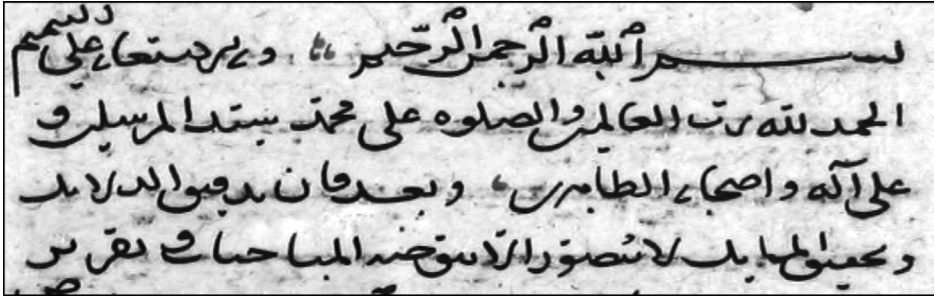 بسم الله الرحمن الرحيم وبه نستعين على
الحمد لله رب العالمين والصلوه على محمد سيد المرسلين و
على آله واصحابه الطاهرين وبعد فان تدقيق الدلائل
وتحقيق المسائل لا يتصور الا بتوضيح المباحثات و تقرير